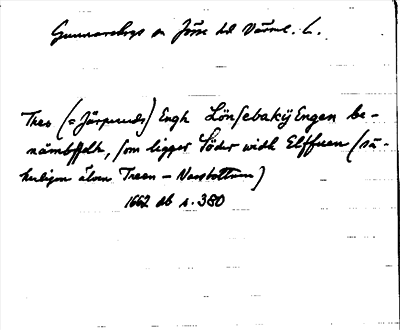 Gunnarsbyn on Jösse hd Värml. L.
Tres (= Järpruds) Engh Lönsebakij Engen be-
nämbdh, som ligger Söder widh Elffuen (sä-
kerligen älven Treen - Norsbottnen)
1662 Ab s. 380